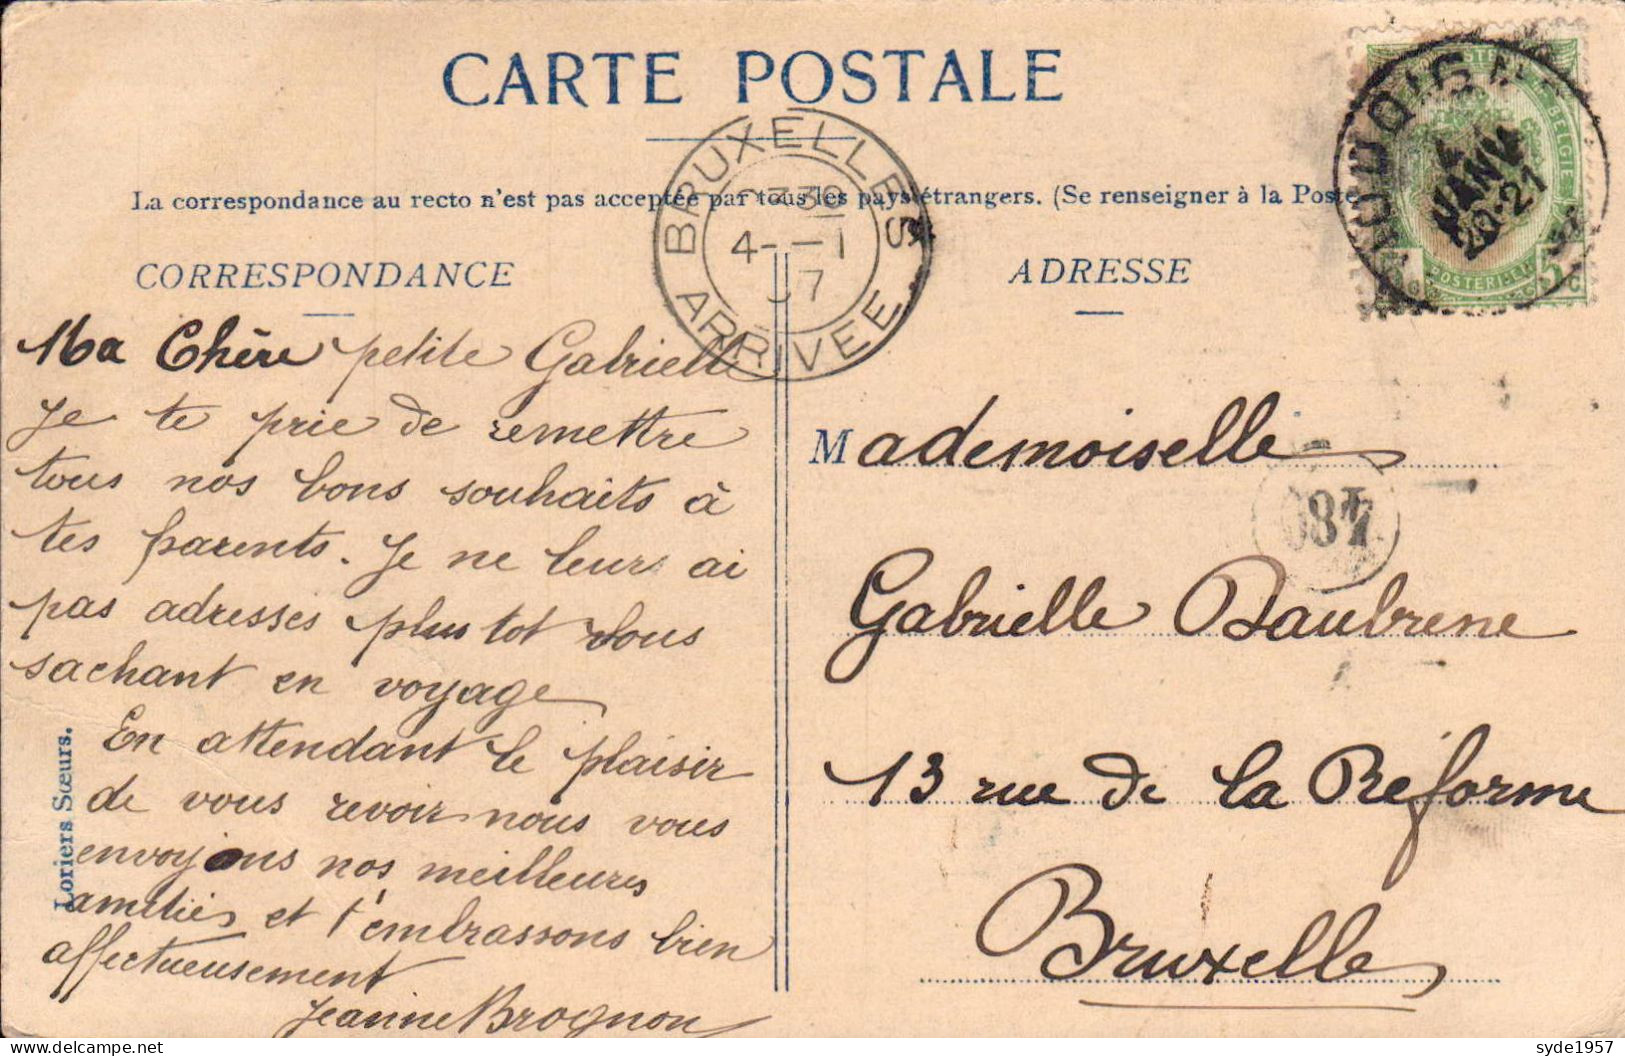 CARTE POSTALE
BRUXELLES
4-I
7
ARRIVEE
La correspondance au recto n'est pas acceptée par tous les pays étrangers. (Se renseigner à la Poste
CORRESPONDANCE
Ma Chère petite Gabrielle
Je te prie de remettre
tous nos bons souhaits à
tes parents. Je ne leurs ai
pas adresses plus tot vous
sachant en voyage
En attendant le plaisir
de vous revoir nous vous
envoyons nos meilleures
amitiés et t'embrassons bien
affectueusement
Jeanne Brognon
Loriers Sœurs.
ADRESSE
4
JANV
20-21
5
Mademoiselle
Gabrielle Daubrene
13 rue de la Réforme
Bruxelle
syde1957